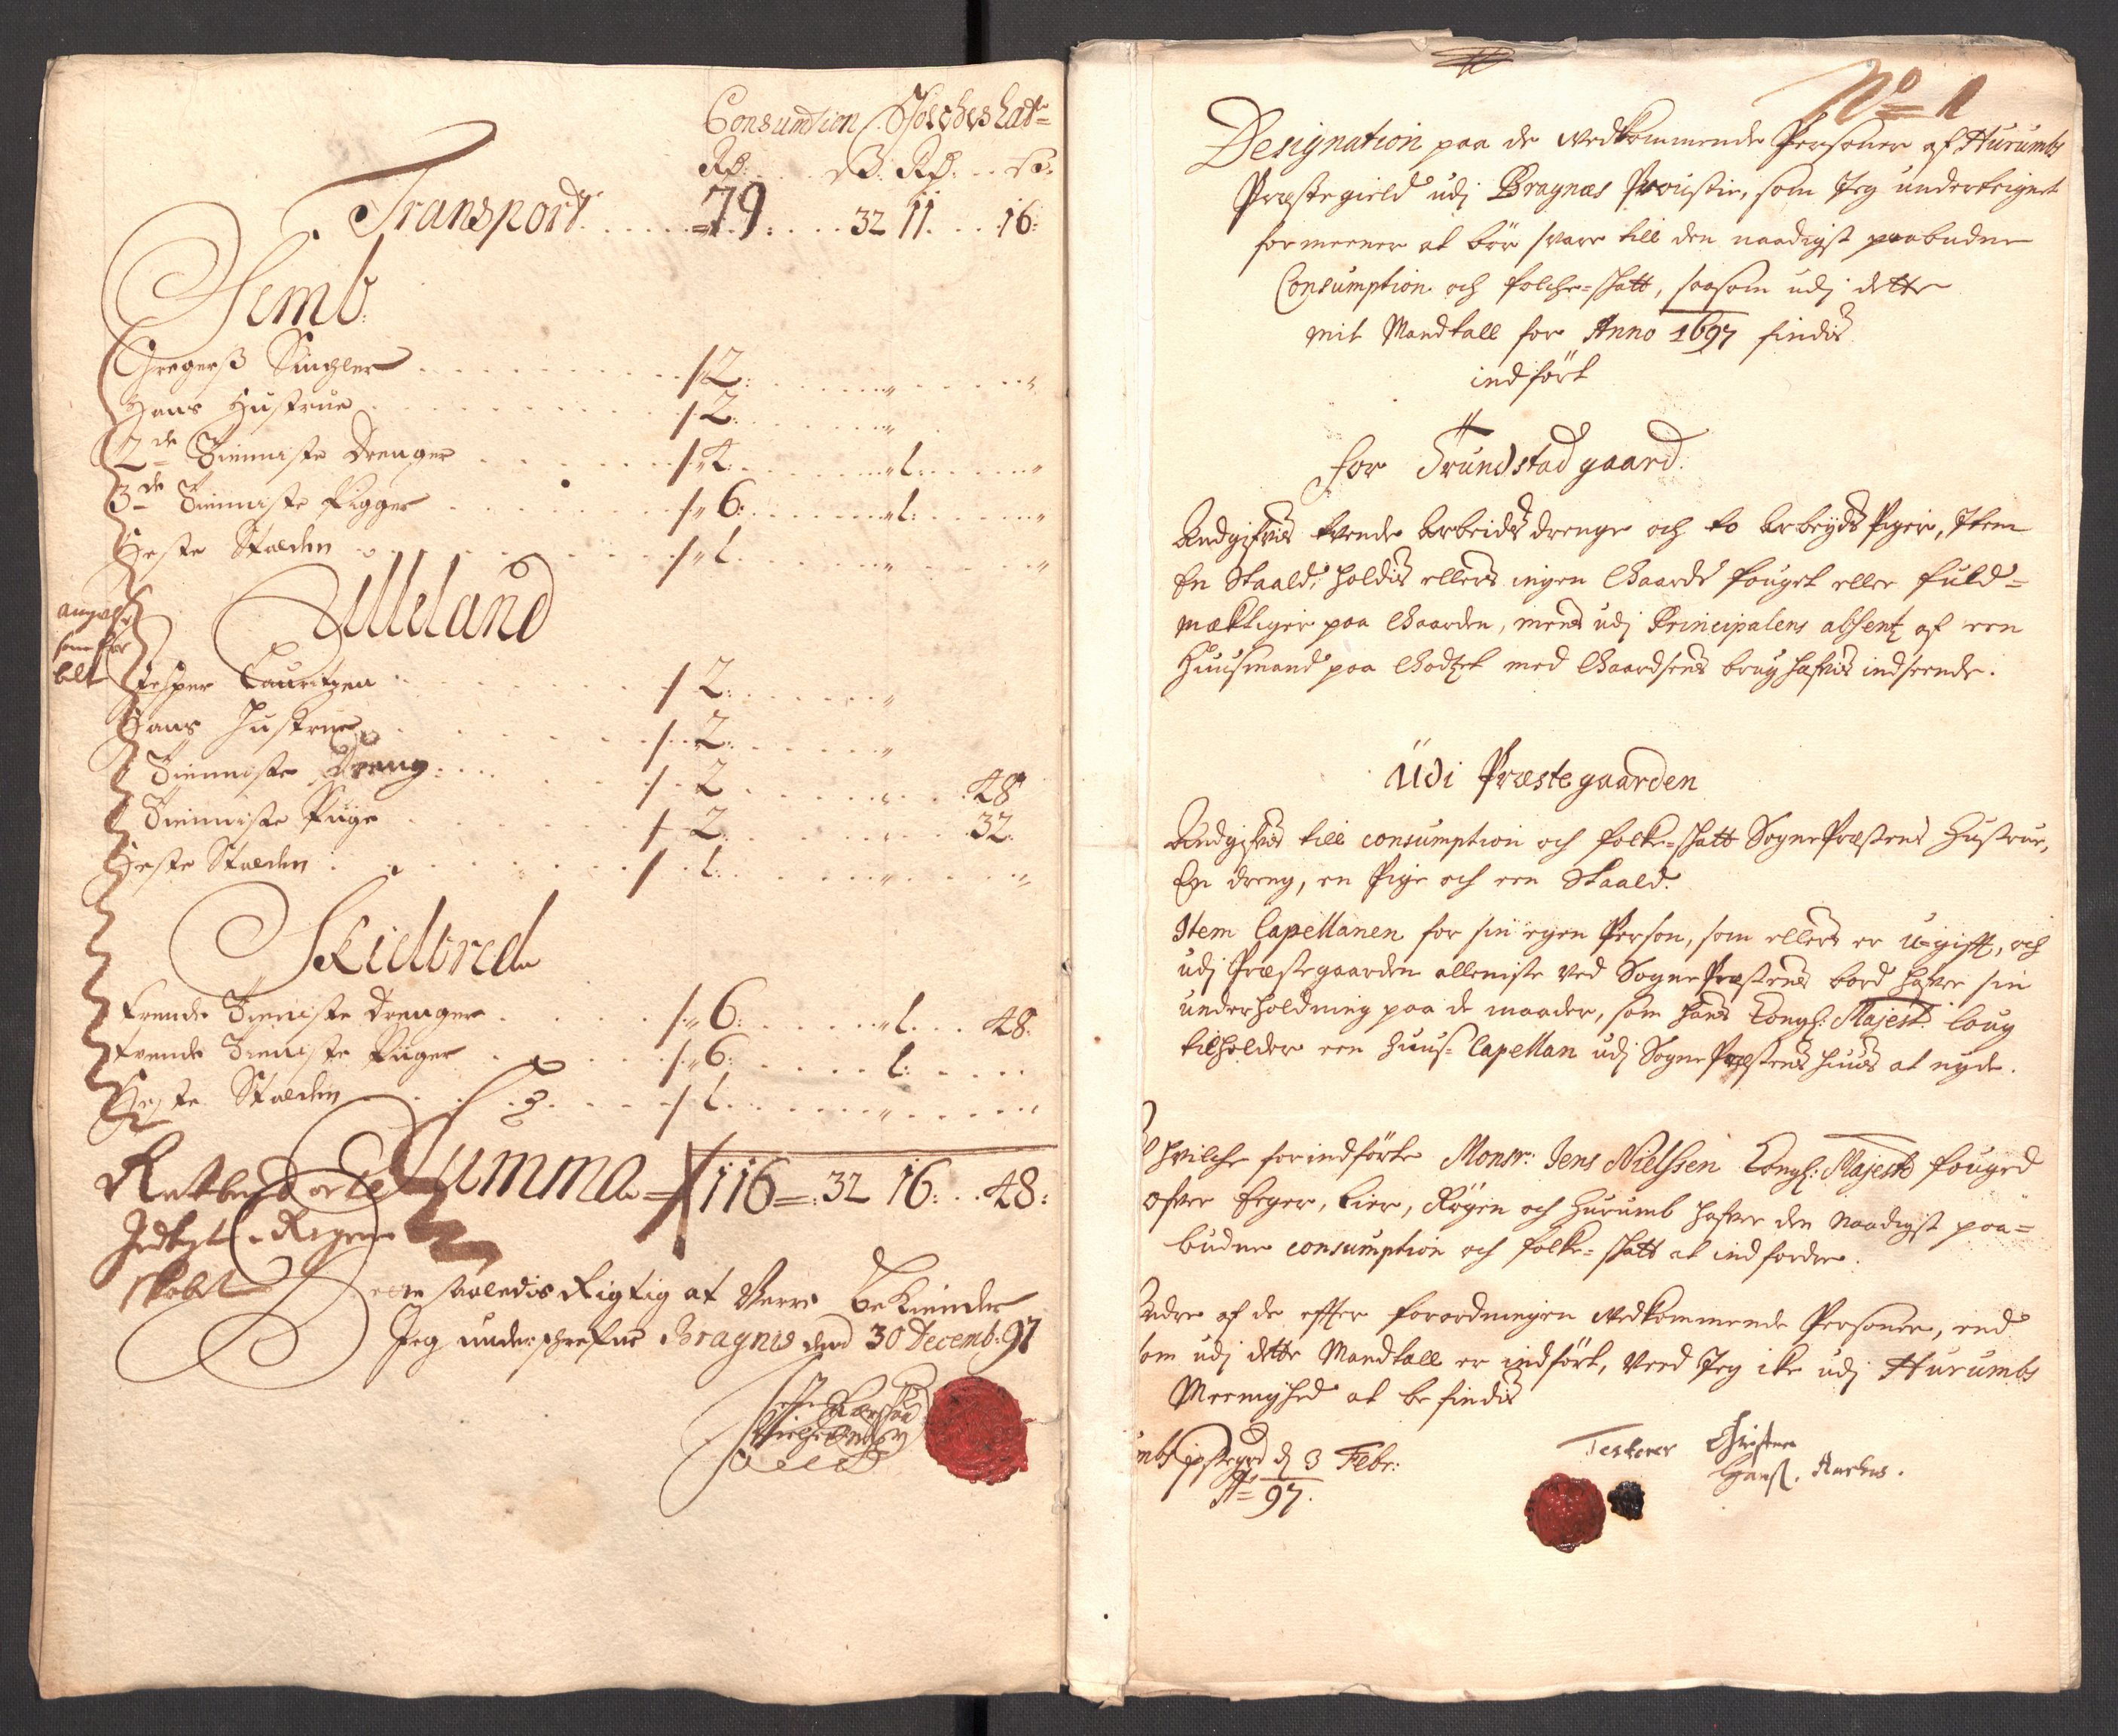 Consumtion Folches hat=
Rd: ß: Rd: ß:
Transport 79: 32 11 16:
Semb:
Gregerß Sinchler 2:
Hans Hustrue 2:
2de Tienniste Drenger 4: 1:
3de Tienniste Pigger 6: 1:
Heste Stalden 1
Ulleland
Jesper Lauritzen 2:
Hans Hustrue 2:
Tienniste Dreng 2 48
Tienniste Piige 2: 32:
Heste Stalden 1:
Skielbred
Trende Tieniste Drenger 6: 1 48:
Trende Tieniste Piiger 6: 1:
Heste Stalden 1
Summa 116 32 16: 48:
saaledis Rigtig at Verre Bekiender
Jeg underschrefne Bragnis dend 30 Decemb: 97
No 1
Designation paa de vedkommende Persohner af Hurumbs
Præstegield udj Bragnæs Provstie, som Jeg underteignet
formeener at bör svare till den naadigst paabudne
Consumption och folche=skatt, saasom udj dette
mit Mandtall for Anno 1697 findis
indfört
for Trundstad gaard.
Andgifvis tvende Arbeids drenge och to Arbeyds Piger, Item
En Staald; holdis ellers ingen Gaards fouget eller fuld=
mæktiger paa Gaarden, mens udj Principalens absentz af een
Huusmand paa Godtzet med Gaardsens brug hafvis indseende.
Udi Præstegaarden
Andgifvis till consumption och folke=skatt SognePræstens Hustrue,
En dreng, en Pige och een Staald.
Item Capellanen for sin egen Person, som ellers er u-gift, och
udj Præstegaarden alleniste ved SognePræstens bord hafver sin
underholdning paa de maader, som hans Kongl: Majest: loug
tilholder een Huus=Capellan udj SognePræstens huus at nyde.
hvilche forindförte Monsr: Jens Nielssen Kongl: Majests fouged
ofver Eger, Lier, Rögen och Hurumb hafver den Naadigst paa=
budne consumption och folke=skatt at indfordre.
andre af de effter forordningen vedkommende Persohner, end
som udj dette Mandtall er indfört, veed Jeg ike udj Hurumbs
Meenighed at befindis
d 3 Febr:
Ao 97.
Testerer Christen
Hanß. Aarhus.